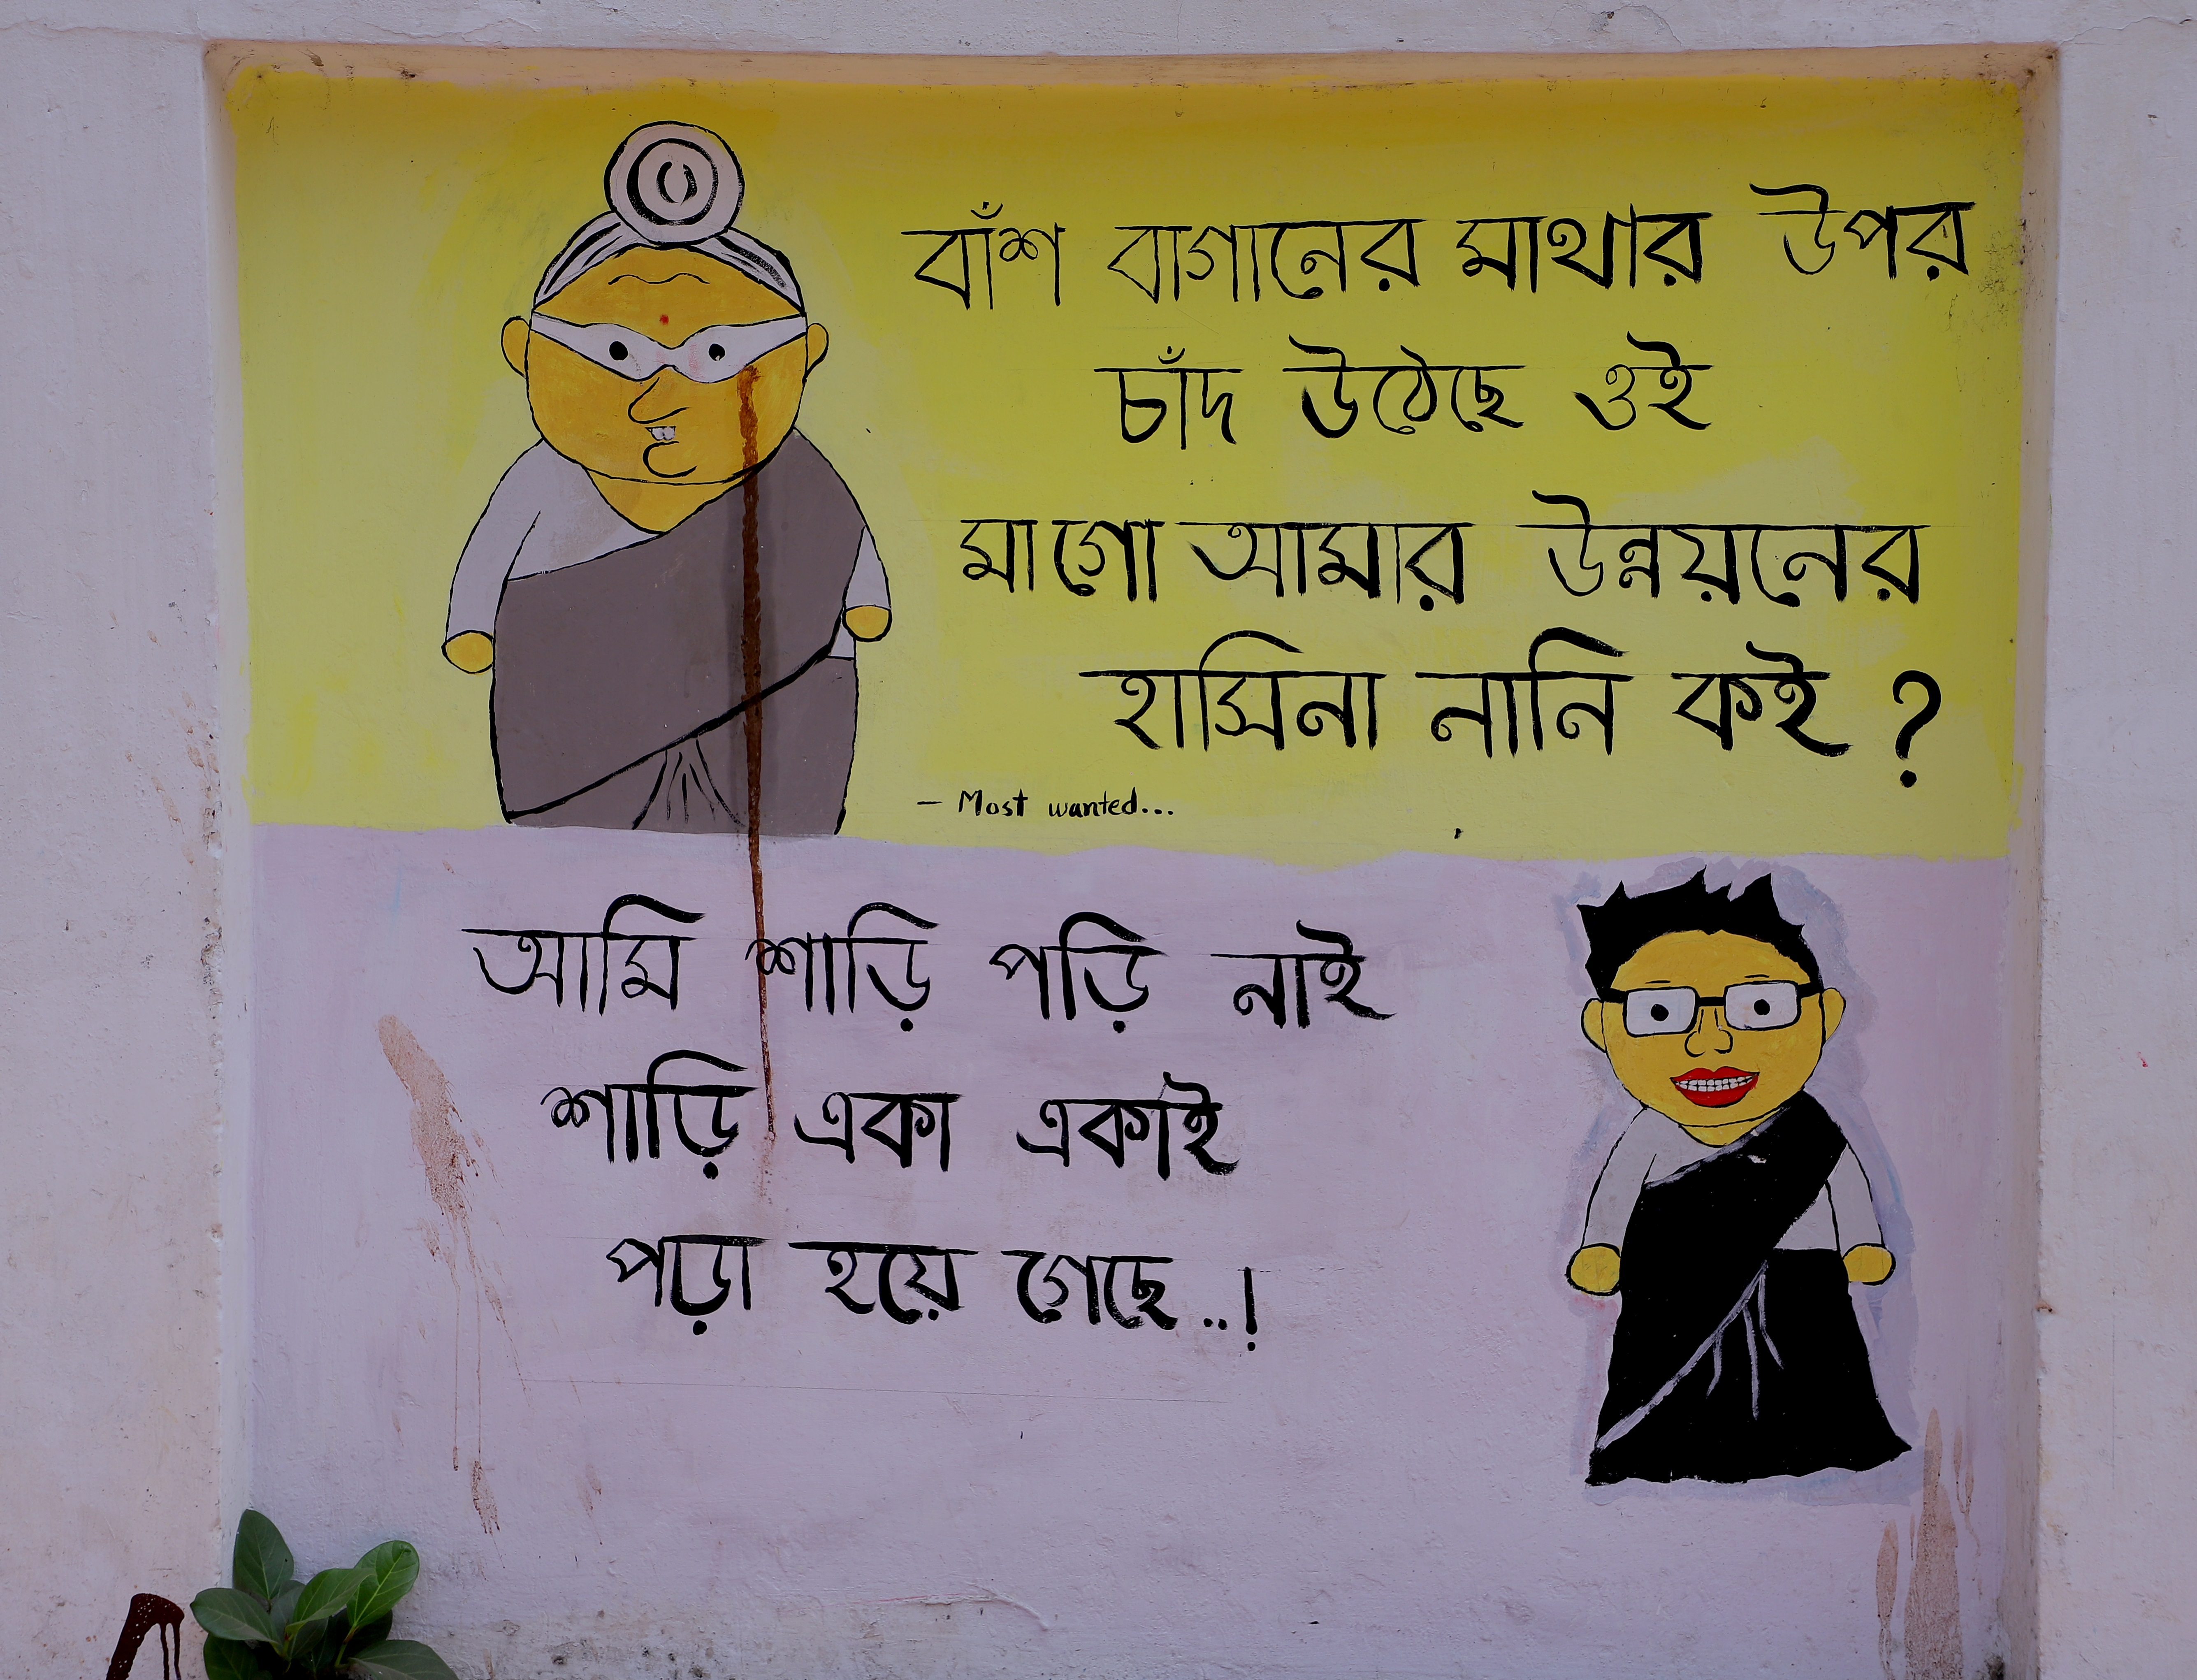 বাঁশ বাগানের মাথার উপর
চাঁদ উঠেছে ওই
মাগো আমার উন্নয়নের
হাসিনা নানি কই ?
— Most wanted...
আমি শাড়ি পড়ি নাই
শাড়ি একা একাই
পড়া হয়ে গেছে..!